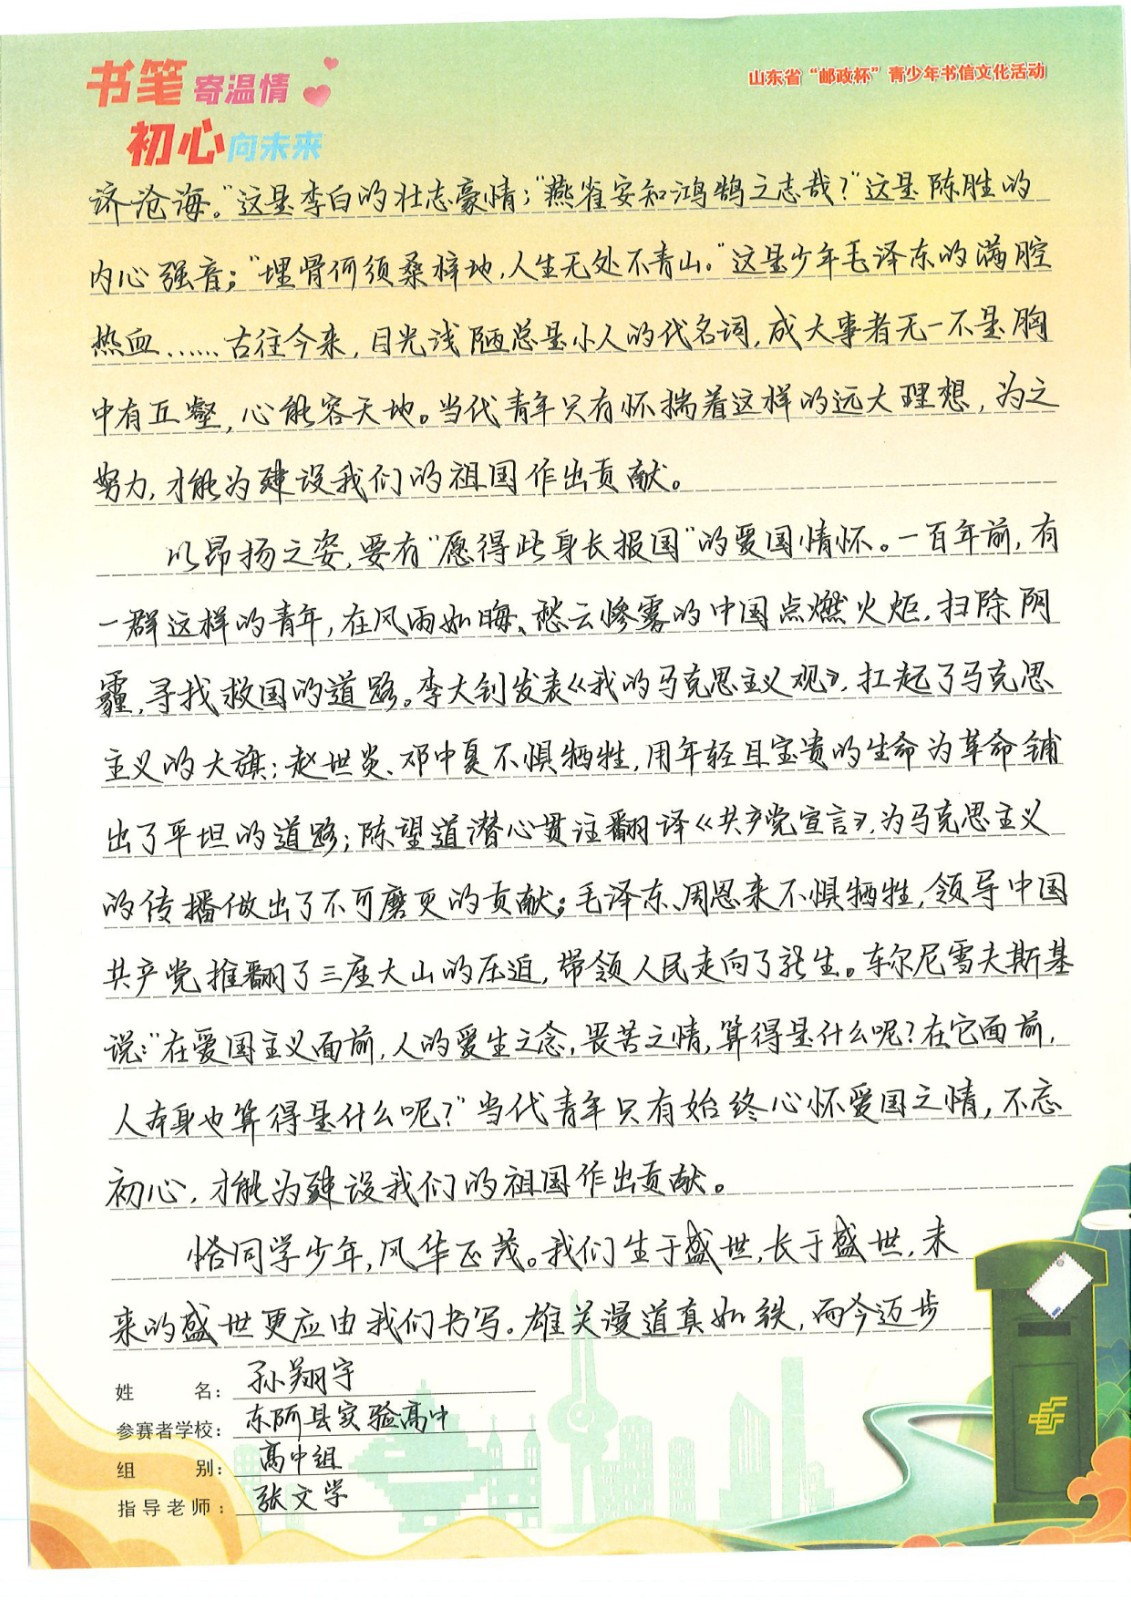 书笔寄温情
山东省“邮政杯”青少年书信文化活动
初心向未来
济沧海。”这是李白的壮志豪情；“燕雀安知鸿鹄之志哉？”这是陈胜的
内心强音；“埋骨何须桑梓地，人生无处不青山。”这是少年毛泽东的满腔
热血……古往今来，目光浅陋总是小人的代名词，成大事者无一不是胸
中有丘壑，心能容天地。当代青年只有怀揣着这样的远大理想，为之
努力，才能为建设我们的祖国作出贡献。
以昂扬之姿，要有“愿得此身长报国”的爱国情怀。一百年前，有
一群这样的青年，在风雨如晦、愁云惨雾的中国点燃火炬，扫除阴
霾，寻找救国的道路。李大钊发表《我的马克思主义观》，扛起了马克思
主义的大旗；赵世炎、邓中夏不惧牺牲，用年轻且宝贵的生命为革命铺
出了平坦的道路；陈望道潜心贯注翻译《共产党宣言》，为马克思主义
的传播做出了不可磨灭的贡献；毛泽东、周恩来不惧牺牲，领导中国
共产党推翻了三座大山的压迫，带领人民走向了新生。车尔尼雪夫斯基
说：“在爱国主义面前，人的爱生之念，畏苦之情，算得是什么呢？在它面前，
人本身也算得是什么呢？”当代青年只有始终心怀爱国之情，不忘
初心，才能为建设我们的祖国作出贡献。
恰同学少年，风华正茂。我们生于盛世，长于盛世，未
来的盛世更应由我们书写。雄关漫道真如铁，而今迈步
姓名：孙翔宇
参赛者学校：东阿县实验高中
组别：高中组
指导老师：张文学